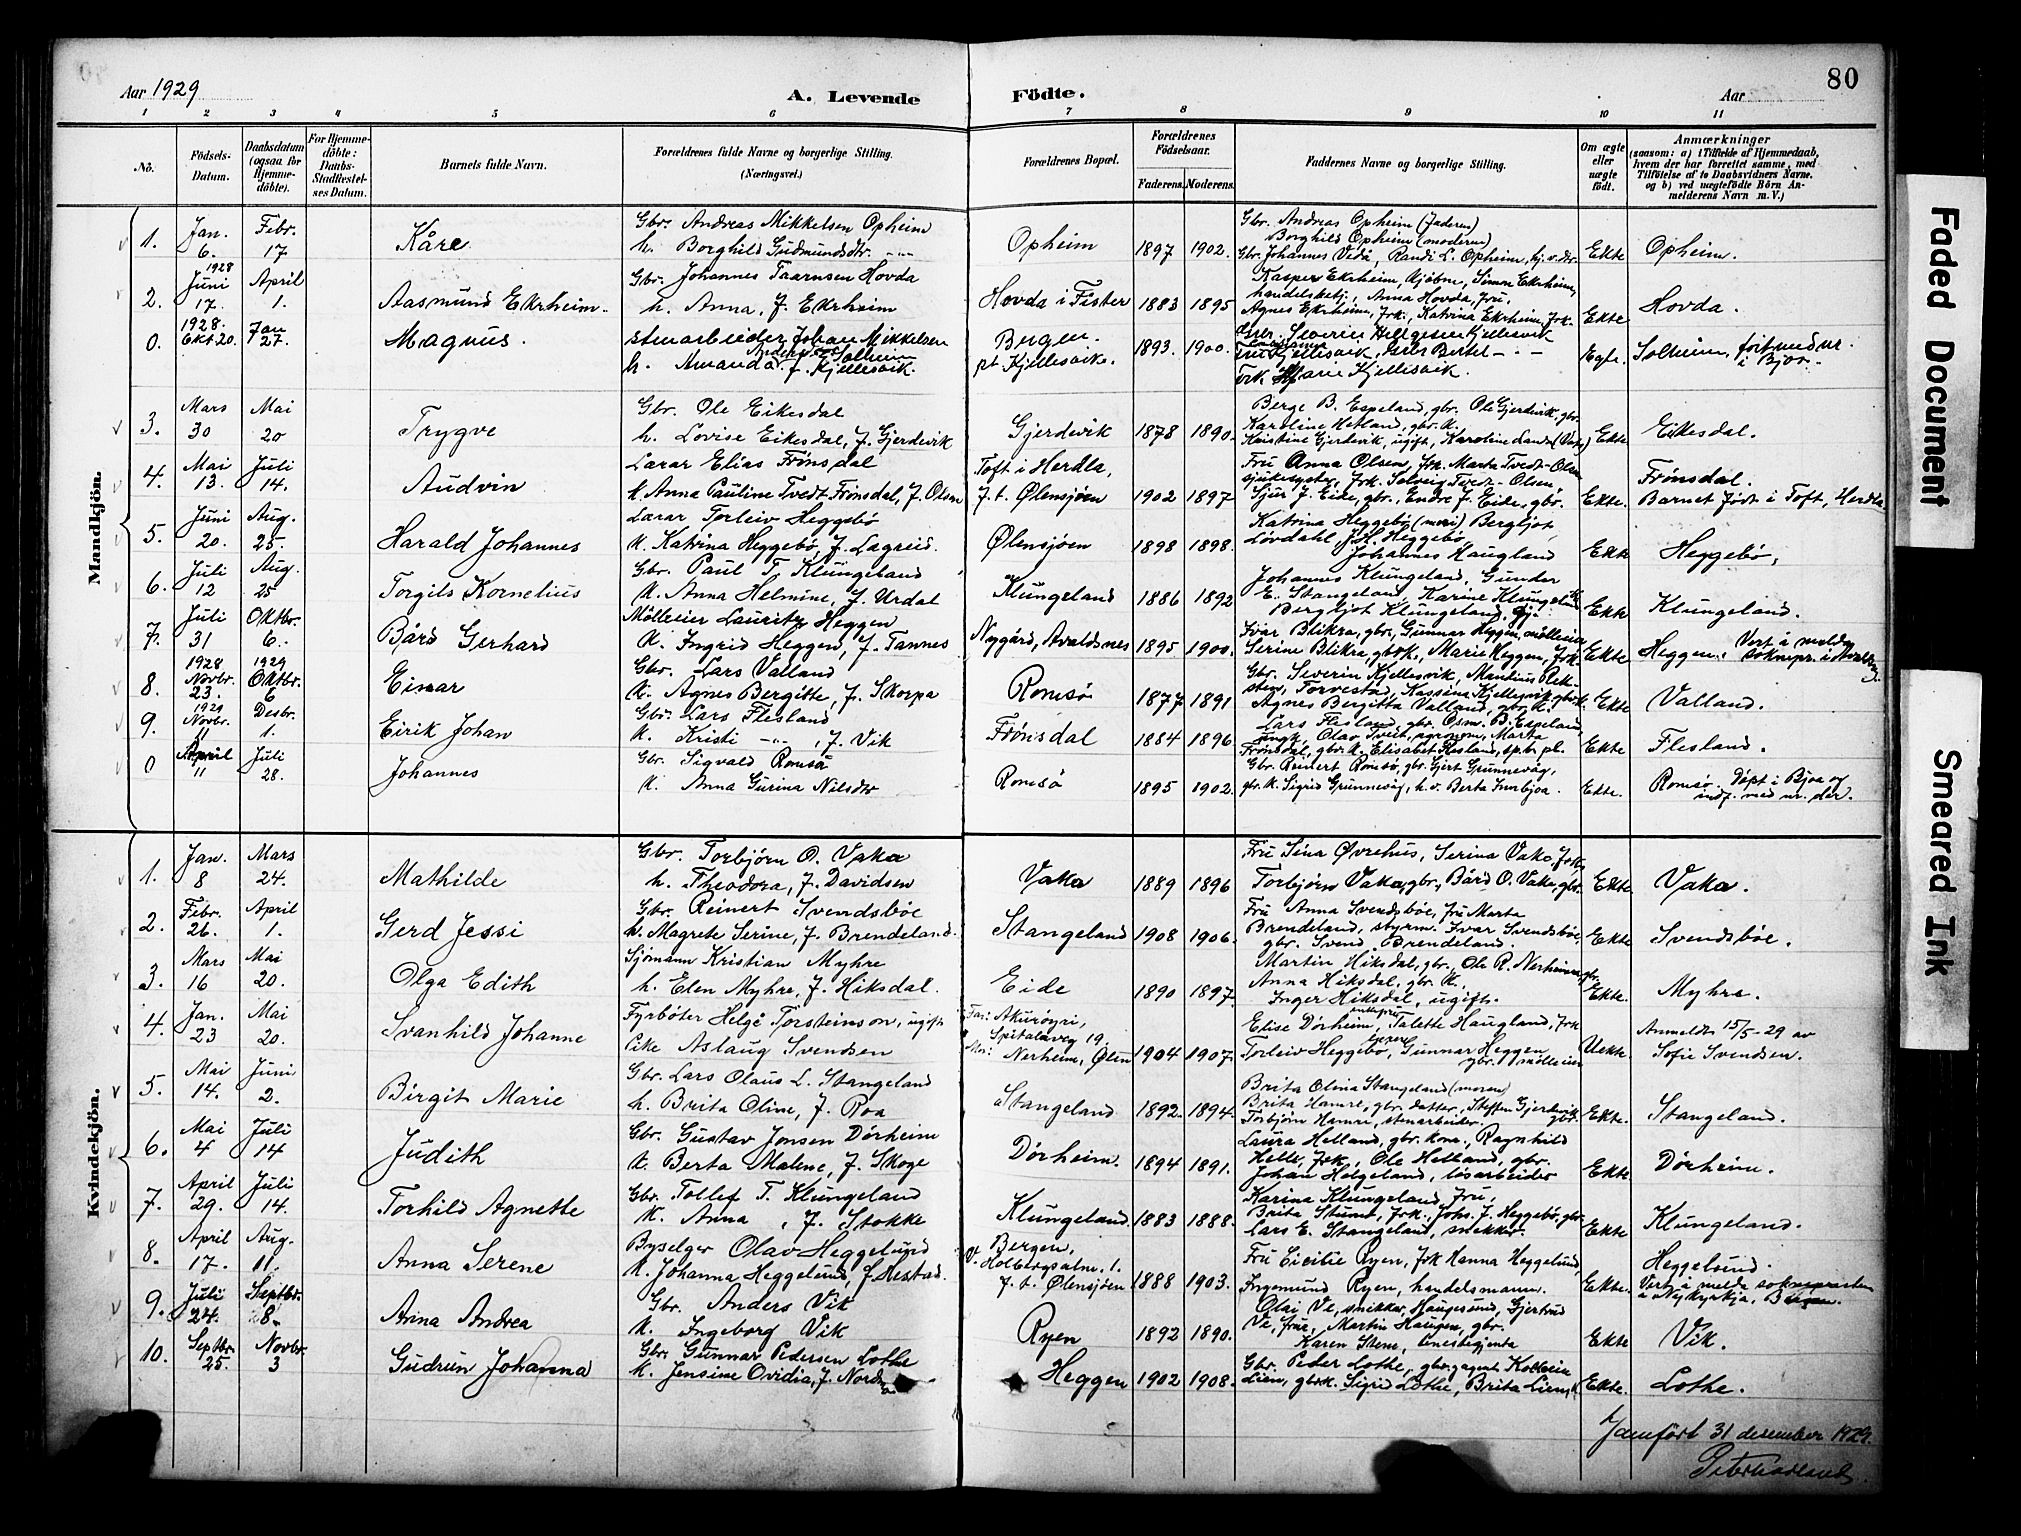 80
Aar 1929
A. Levende Födte.
Aar
1 2 3 4 5 6 7 8 9 10 11
No.
Födsels-Datum.
Daabsdatum (ogsaa for Hjemmedöbte).
For Hjemmedöbte: Daabs-Stadfæstelses Datum.
Barnets fulde Navn.
Forældrenes fulde Navne og borgerlige Stilling. (Næringsvei.)
Forældrenes Bopæl.
Forældrenes Födselsaar.
Faderens. Moderens.
Faddernes Navne og borgerlige Stilling.
Om ægte eller uægte födt.
Anmærkninger
(saasom: a) i Tilfælde af Hjemmedaab, hvem der har forrettet samme, med Tilföielse af to Daabsvidners Navne. og b) ved uægtefödte Börn Anmelderens Navn m. V.)
Mandkjön.
1. Jan. 6. Febr. 17 Kåre
Gbr. Andreas Mikkelsen Opheim
h. Borghild Gudmundsdtr.
Opheim 1897 1902.
Gbr. Andreas Opheim (faderen)
Borghild Opheim (moderen)
Gbr. Johannes Vedå, Randi L. Opheim,
Ekte Opheim.
2. 1928 Juni 17. April 1. Aasmund Ekrheim.
Gbr. Johannes Taarnsen Hovda
h. Anna, f. Ekrheim
Hovda i Fister 1883 1895
Kasper Ekrheim, kjøbm, Simon Ekrheim,
handelsbetj., Anna Hovda, fru,
Agnes Ekrheim, frk., Katrina Ekrheim, frk.
Ekte Hovda.
0. 1928. Okt 20. Jan 27. Magnus.
stenarbeider Johan Mikkelsen
Solheim
h. Amanda f. Kjellesvik.
Bergen.
pt Kjellesvik. 1893. 1900.
Gbr. Severin Helgesen Kjellesvik
Kjellesvik, Gbr Bertel
Frk Marie Kjellesvik.
Egte. Solheim, født med nr. i Bjoa.
3. Mars 30 Mai 20 Trygve
Gbr. Ole Eikesdal
h. Lovise Eikesdal, f. Gjerdevik
Gjerdevik 1878 1890.
Berge B. Espeland, gbr. Ole Gjerdevik, gbr.
Karoline Hetland, gbr. k.
Kristine Gjerdevik, ugift, Karoline Lunde
Ekte Eikesdal.
4. Mai 13. Juli 14. Audvin
Lærar Elias Frönsdal
k. Anna Pauline Tvedt Frönsdal, f. Olsen
Toft i Herdla,
f. t. Ølensjøen 1902 1897
Fru Anna Olsen, frk. Marta Tvedt-Olsen
sjukesyster, frk. Solveig Tvedt-Olsen,
Sjur J. Eide, gbr., Endre J. Eide, gbr.
Ekte. Frönsdal.
Barnet född i Toft, Herdla
5. Juni 20. Aug. 25. Harald Johannes
Lærar Torleiv Heggebö
k. Katrina Heggebö, f. Lagreid.
Ølensjøen 1898 1898.
Katrina Heggebö (mori) Bergljot
Lövdahl, J.H. Heggebö
Johannes Haugland
Ekte Heggebö,
6. Juli 12 Aug. 25 Torgils Kornelius
Gbr. Paul T. Klungeland
k. Anna Helmine, f. Urdal
Klungeland 1886 1892
Johannes Klungeland, Gunder
E. Stangeland, Karine Klungeland
Bergljot Klungeland,
Ekte Klungeland.
7. Juli 31 Oktbr. 6. Bård Gerhard
Mölleier Lauritz Heggen
k. Ingrid Heggen, f. Tannes
Nygård, Avaldsnes 1895 1900.
Ivar Blikra, gbr., Gunnar Heggen, mölleiar
Serine Blikra gbrk., Marie Heggen, frk.
Ekte Heggen. Vert å melda soknepr. i Avaldsnes
8. 1928 Novbr. 23. 1929 Oktbr. 6 Einar
Gbr. Lars Valland
k. Agnes Bergitte, f. Skorpa
Romsö 1877 1891
Gbr. Severin Kjellesvik, Mandius
Torvestad, Kassina Kjellesvik
Agnes Bergitta Valland, gbr. k.
Ekte Valland.
9. 1929 Novbr. 11 Desbr. 1. Eirik Johan
Gbr. Lars Flesland
k. Kristi, f. Vik
Frönsdal 1884 1896
Lars Flesland, gbr. Osm. B. Espeland,
Olav Tveit, agronom, Marta
Frönsdal, gbr. k. Elisabet Flesland,
Ekte Flesland.
0 April 11 Juli 28. Johannes
Gbr. Sigvald Romsö
k. Anna Gurina Nilsdtr
Romsö 1895 1902.
Gbr. Reinert Romsö, gbr. Gjert Grunnevåg,
gbr. k. Sigrid Grunnevåg, h. v. Berta Innbjoa.
Ekte. Romsö. Döpt i Bjoa og
indf. med nr. der.
Kvindekjön.
1. Jan. 8 Mars 24. Mathilde
Gbr. Torbjörn O. Vaka
h. Theodora, f. Davidsen
Vaka 1889 1896
Fru Sina Øvrehus, Serina Vaka, frk,
Torbjörn Vaka, gbr., Bård O. Vaka, gbr.
Ekte Vaka.
2. Febr. 26. April 1. Gerd Jessi
Gbr. Reinert Svendsböe
h. Magrete Serine, f. Brendeland.
Stangeland 1908 1906.
Fru Anna Svendsböe, fru Marta
Brendeland, styrm. Ivar Svendsböe,
gbr. Svend Brendeland.
Ekte Svendsböe.
3. Mars 16 Mai 20. Olga Edith
Sjömann Kristian Myhre
h. Elen Myhre, f. Hiksdal.
Eide 1890 1897
Martin Hiksdal, gbr., Ole R. Nerheim, gbr.
Anna Hiksdal, gbr. k.,
Inger Hiksdal, ugift.
Ekte. Myhre.
4. Jan. 23 Mai 20. Svanhild Johanne
Fyrböter Helge Torsteinson, ugift
Pike Aslaug Svendsen
Far: Akuröyri,
Spitalaveg 19,
Mor: Nerheim, Ølen 1904 1907.
Elise Dörheim, Talette Haugland, frk
Torleiv Heggebö, Gunnar Heggen
gbr. mölleier
Uekte. Anmeldt 15/5-29 av
Sofie Svendsen.
5. Mai 14. Juni 2. Birgit Marie
Gbr. Lars Olaus L. Stangeland
h. Brita Oline, f. Roa
Stangeland 1892. 1894.
Brita Olina Stangeland (moren)
Brita Hamre, gbr. datter, Steffen Gjerdevik gbr.
Torbjörn Hamre, stenarbeider.
Ekte. Stangeland.
6. Mai 4 Juli 14 Judith
Gbr. Gustav Jonsen Dörheim
k. Berta Malene, f. Skoge
Dörheim. 1894 1891.
Laura Helland, gbr. kona., Ragnhild
Helle, frk., Ole Helland, gbr.
Johan Helgeland, lösarbeider
Ekte Dörheim.
7. April 29. Juli 14. Torhild Agnette
Gbr. Tollef T. Klungeland
k. Anna, f. Stokke
Klungeland. 1883 1888.
Karina Klungeland, fru,
Brita Stumo, frk., Johs. J. Heggebö, gbr
Lars E. Stangeland, snekker.
Ekte Klungeland.
8. April 17. Aug. 11. Anna Serene
Byselger Olav Heggelund
k. Johanna Heggelund, f. Hestad.
Bergen,
V. Holbergsalm. 1.
f. t. Ølensjöen 1888 1903.
Fru Cicilie Ryen, frk Hanna Heggelund,
Ingemund Ryen, handelsmann.
Ekte. Heggelund.
Vert å melda soknepresten
i Nykyrkja, Bergen.
9. Juli 24. Septbr. 8. Anna Andrea
Gbr. Anders Vik
k. Ingeborg Vik
Ryen 1892 1890.
Olai Ve, snikkar, Haugesund, Gjertrud
Ve, frue, Martin Haugen, gbr.
Karen Stene,
Ekte Vik.
10. Septbr. 25. Novbr. 3 Gudrun Johanna
Gbr. Gunnar Pedersen Lothe
k. Jensine Ovidia, f.
Heggen 1902 1908.
Gbr. Peder Lothe, gbr. agent Kolbein
Lien, gbrk. Sigrid Lothe, Brita Lien,
Ekte. Lothe.
Jamfört 31 desember 1929.
Faded Document
Smeared Ink